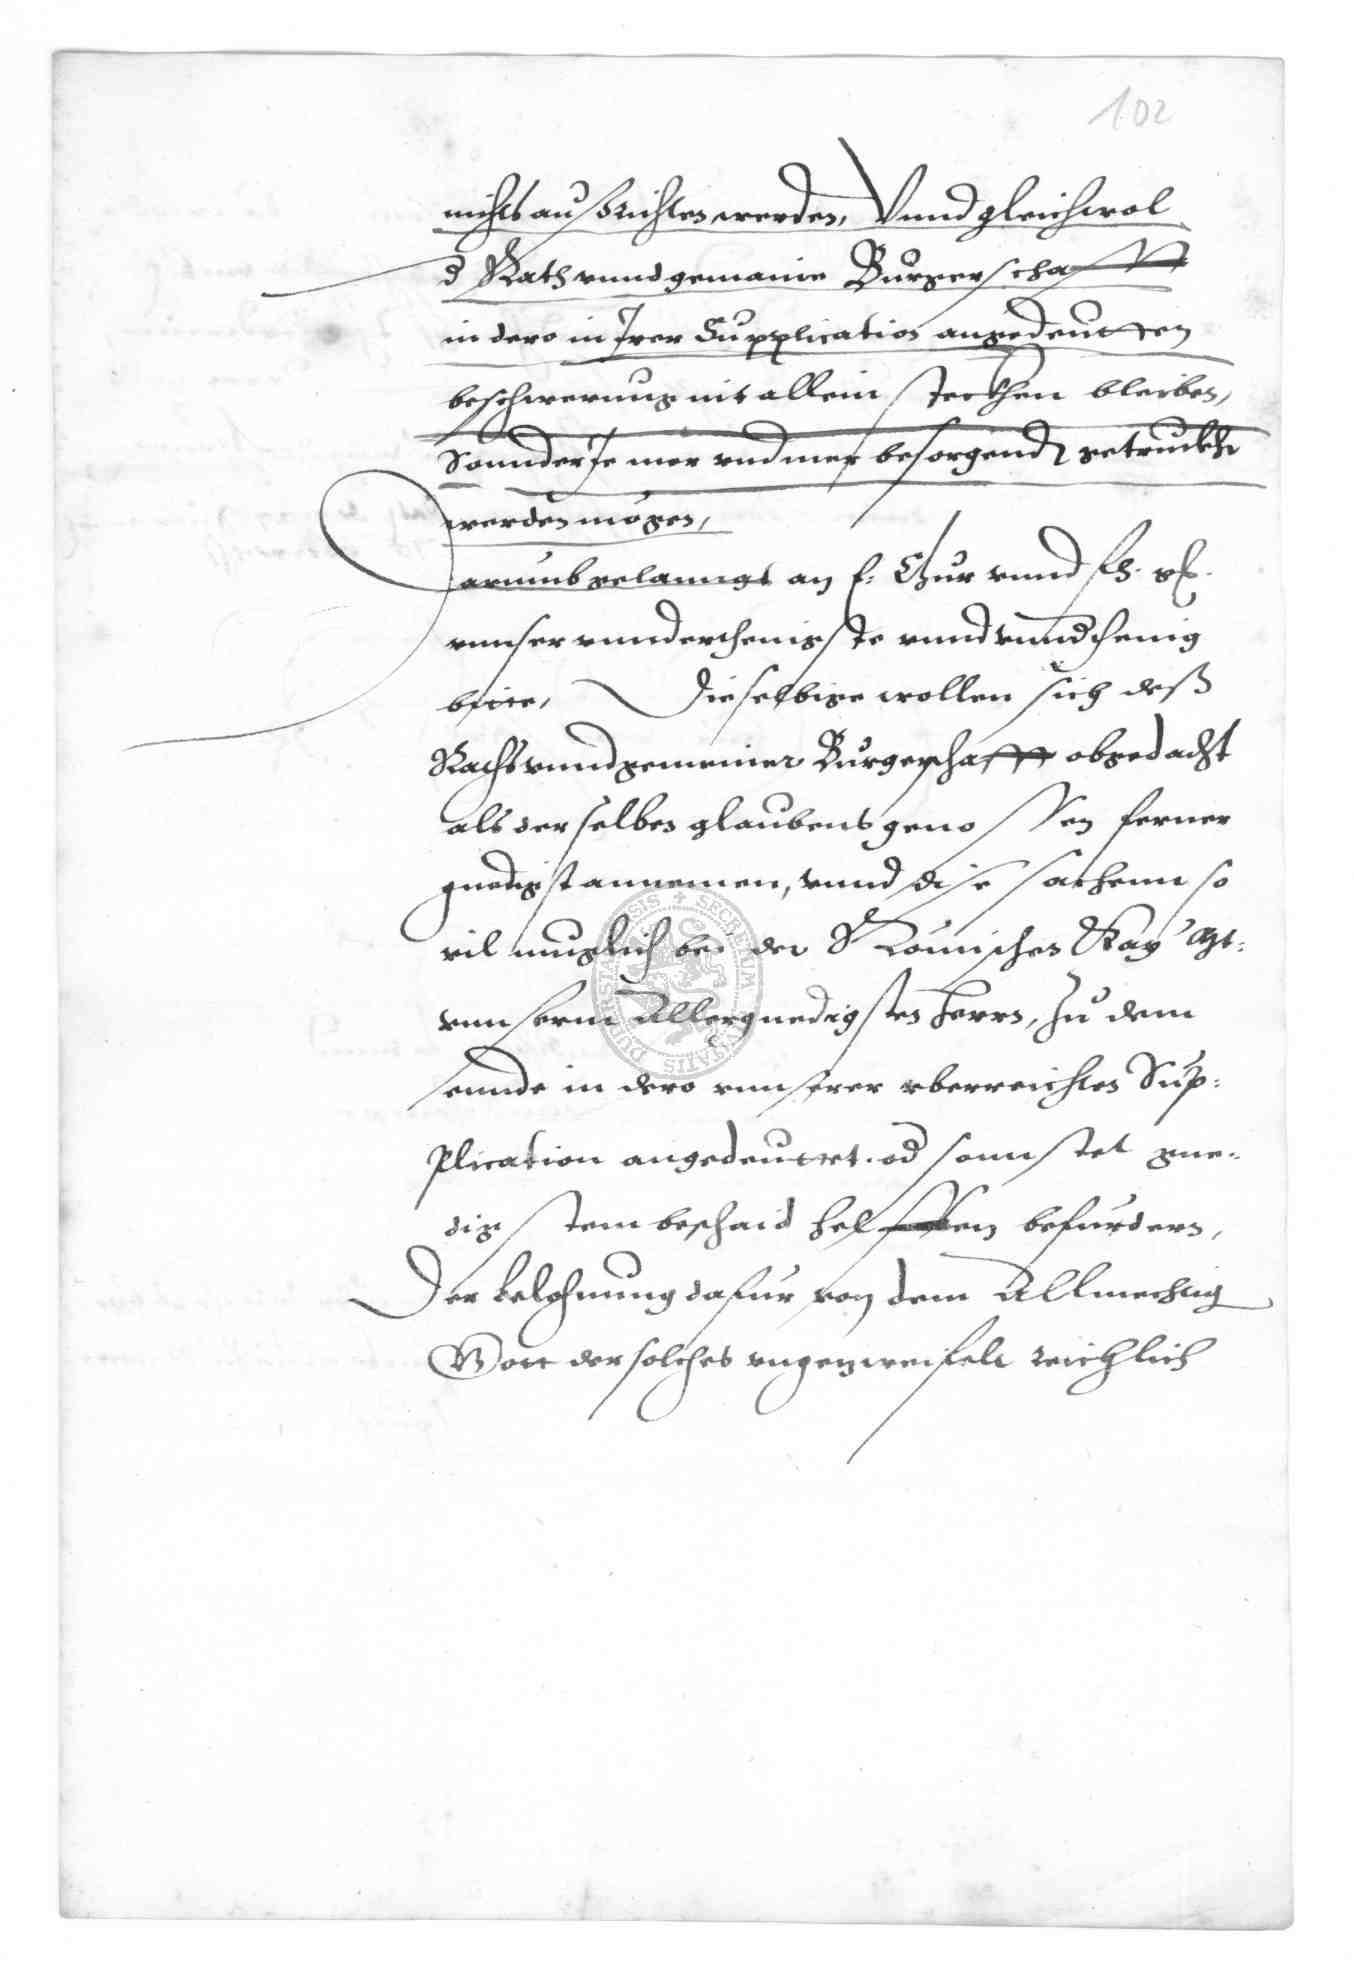 102
nichts ausrichten werden, Vnnd gleichwol
d Rath vnnd gemaine Burgerschafft
in dero in Irer Supplication angedeutten
beschwerung nit allein steckhen bleiben,
Sonnder Je mer vnd mer besorgend getruckht
werden mögen,
Darumb gelanngt an E: Chur vnnd f. g.
vnnser vnnderthenigste vnnd vnndthenig
bitte, Dieselbige wollen sich deß
Raths vnnd gemeiner Burgerschafft obgedacht
als derselben glaubens genossen ferner
gnedigst annemen, vnnd dise sachenn so
vil muglich bei der Römischen Kay Mt:
vnnserm Allergnedigsten herrn, Zu dem
ennde in dero vnnserer vberreichten Sup:
plication angedeuttet. od sonnstet gne:
digstem beschaid helffen befurdern,
Der belohnung dafur von dem Allmechtig
Gott der solches vngezweifelt reichlich
SECRETUM CIVITATIS DUDERSTADENSIS